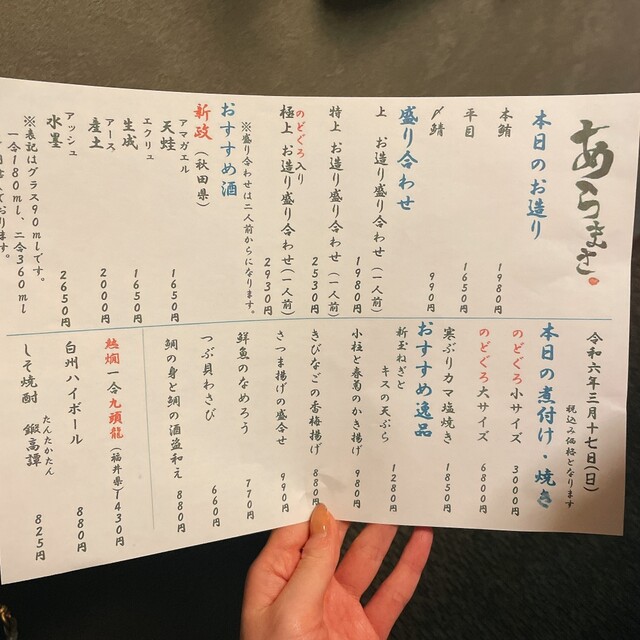 あらまさ
本日のお造り
本鮪 1980円
平目 1650円
〆鯖 990円
盛り合わせ
上 お造り盛り合わせ(一人前) 1980円
特上 お造り盛り合わせ(一人前) 2530円
のどぐろ入り
極上 お造り盛り合わせ(一人前) 2930円
※盛り合わせは二人前からになります。
おすすめ酒
新政(秋田県)
アマガエル
天蛙 1650円
エクリュ
生成 1650円
アース
産土 2000円
アッシュ
水墨 2650円
※表記はグラス90mlです。
一合180ml、二合360ml
ております。
令和六年三月十七日(日)
税込み価格となります
本日の煮付け・焼き
のどぐろ小サイズ 3000円
のどぐろ大サイズ 6800円
寒ぶりカマ塩焼き 1850円
おすすめ逸品
新玉ねぎと
キスの天ぷら 1280円
小柱と春菊のかき揚げ 980円
きびなごの香梅揚げ 880円
さつま揚げの盛合せ 990円
鮮魚のなめろう 770円
つぶ貝わさび 660円
鯛の身と鯛の酒盗和え 880円
熱燗一合九頭龍(福井県)1430円
白州ハイボール 880円
たんたかたん
しそ焼酎 鍛高譚 825円